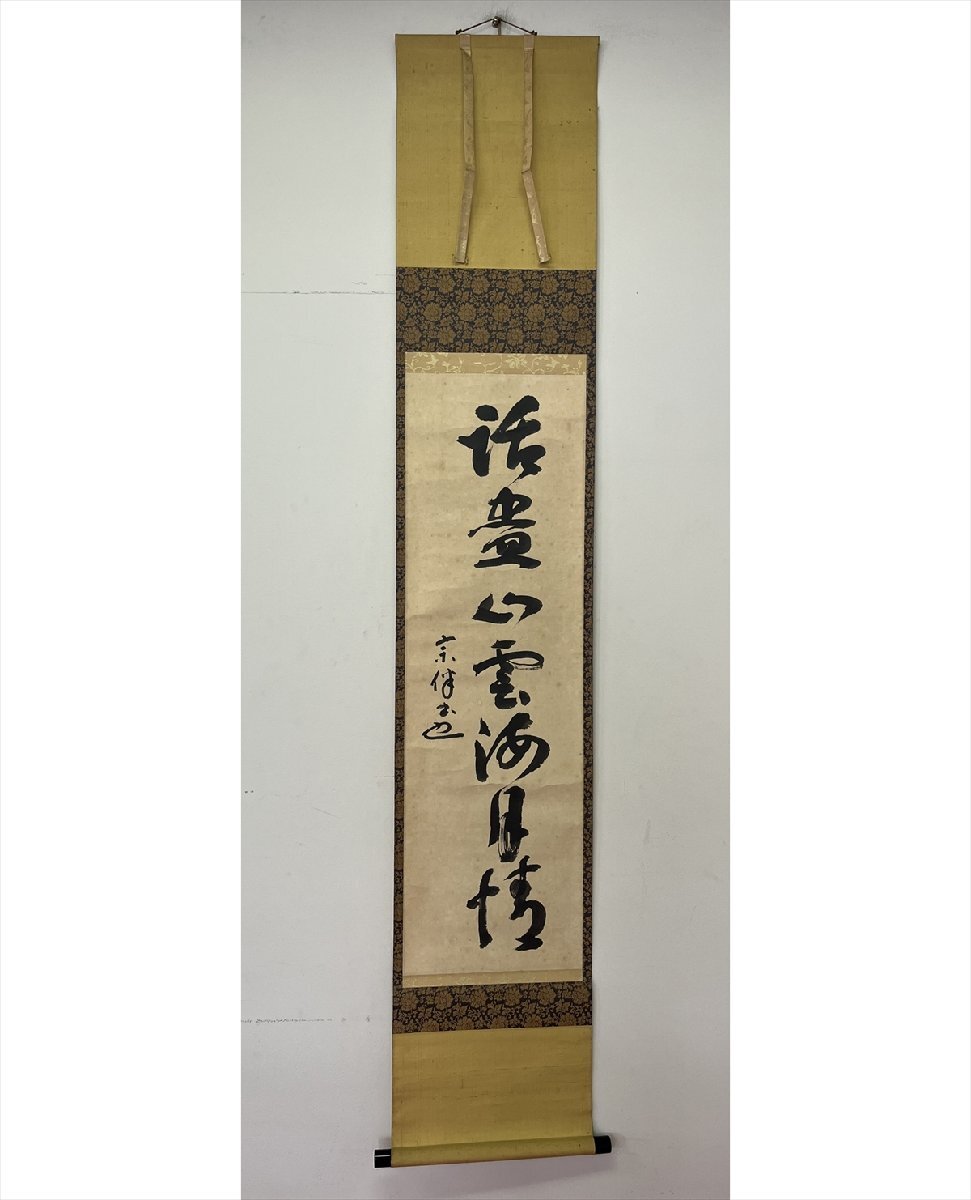 話盡山雲海月情
宗津書